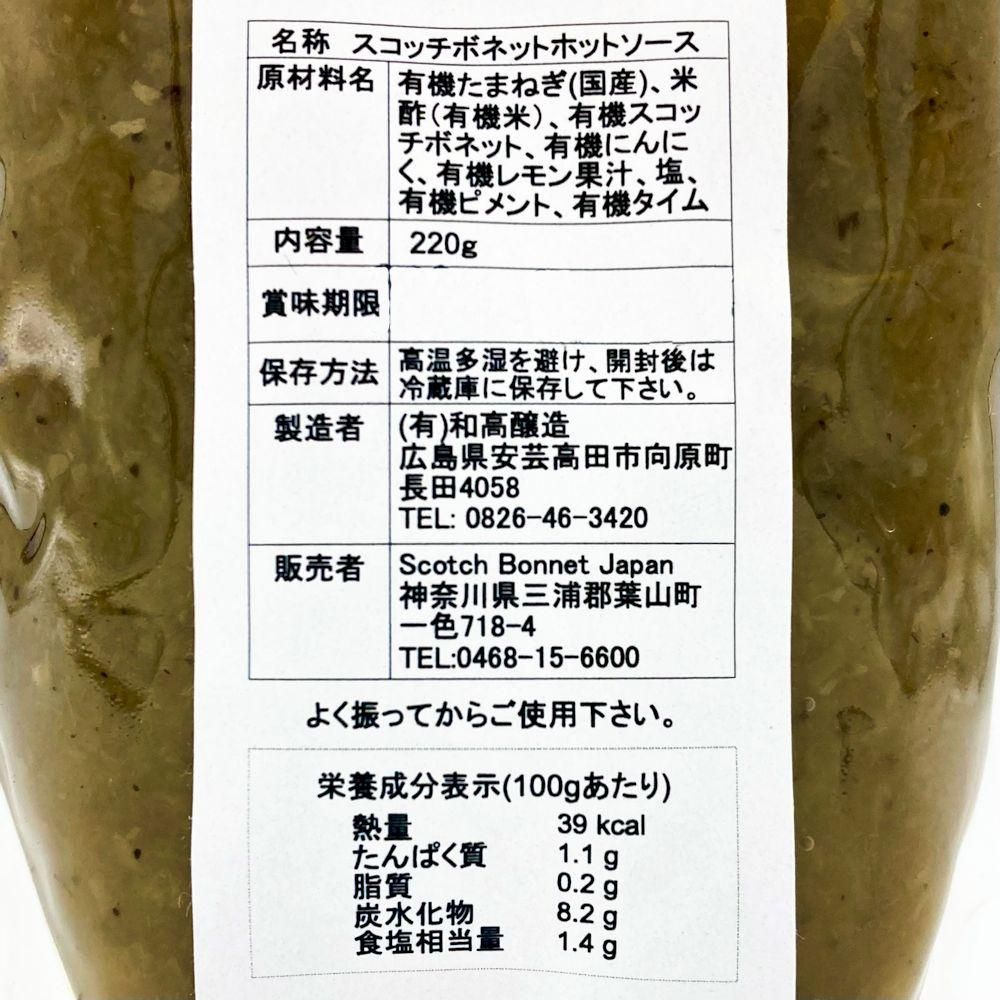 名称 スコッチボネットホットソース
原材料名 有機たまねぎ(国産)、米
酢(有機米)、有機スコッ
チボネット、有機にんに
く、有機レモン果汁、塩、
有機ピメント、有機タイム
内容量 220g
賞味期限
保存方法 高温多湿を避け、開封後は
冷蔵庫に保存して下さい。
製造者 (有)和高醸造
広島県安芸高田市向原町
長田4058
TEL: 0826-46-3420
販売者 Scotch Bonnet Japan
神奈川県三浦郡葉山町
一色718-4
TEL:0468-15-6600
よく振ってからご使用下さい。
栄養成分表示(100gあたり)
熱量 39 kcal
たんぱく質 1.1 g
脂質 0.2 g
炭水化物 8.2 g
食塩相当量 1.4 g